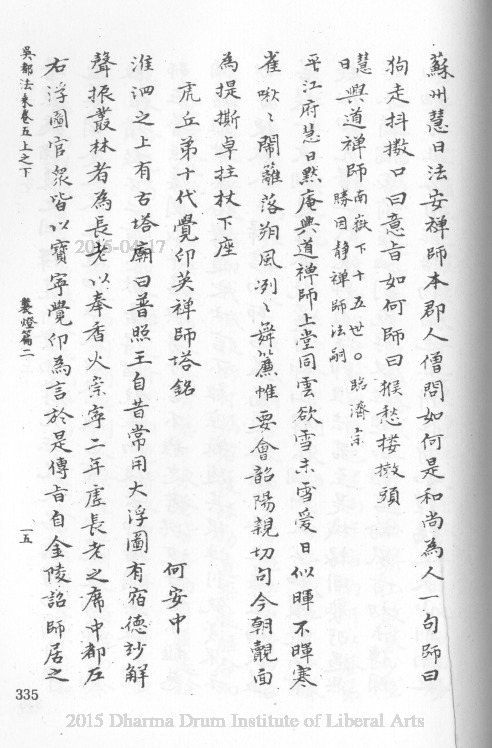 蘇州慧日法安禪師本郡人僧問如何是和尚為人一句師曰
狗走抖擻口曰意旨如何師曰猴愁摟擻頭
慧日興道禪師南嶽下十五世○臨濟宗勝因靜禪師法嗣
平江府慧日默庵興道禪師上堂同雲欲雪未雪愛日似暉不暉寒
雀啾〻鬧籬落朔風冽〻舞簾帷要會韶陽親切句今朝覿面
為提撕卓拄杖下座
虎丘弟十代覺印英禪師塔銘
何安中
淮泗之上有古塔廟曰普照王自昔常用大浮圖有宿德玅解
聲振叢林者為長老以奉香火崇寧二年虛長老之席中都左
右浮圖官眾皆以寶寧覺印為言於是傳旨自金陵詔師居之
吳都法乘卷五上之下
熋燈篇二
一五
335
2015-04-17
2015 Dharma Drum Institute of Liberal Arts